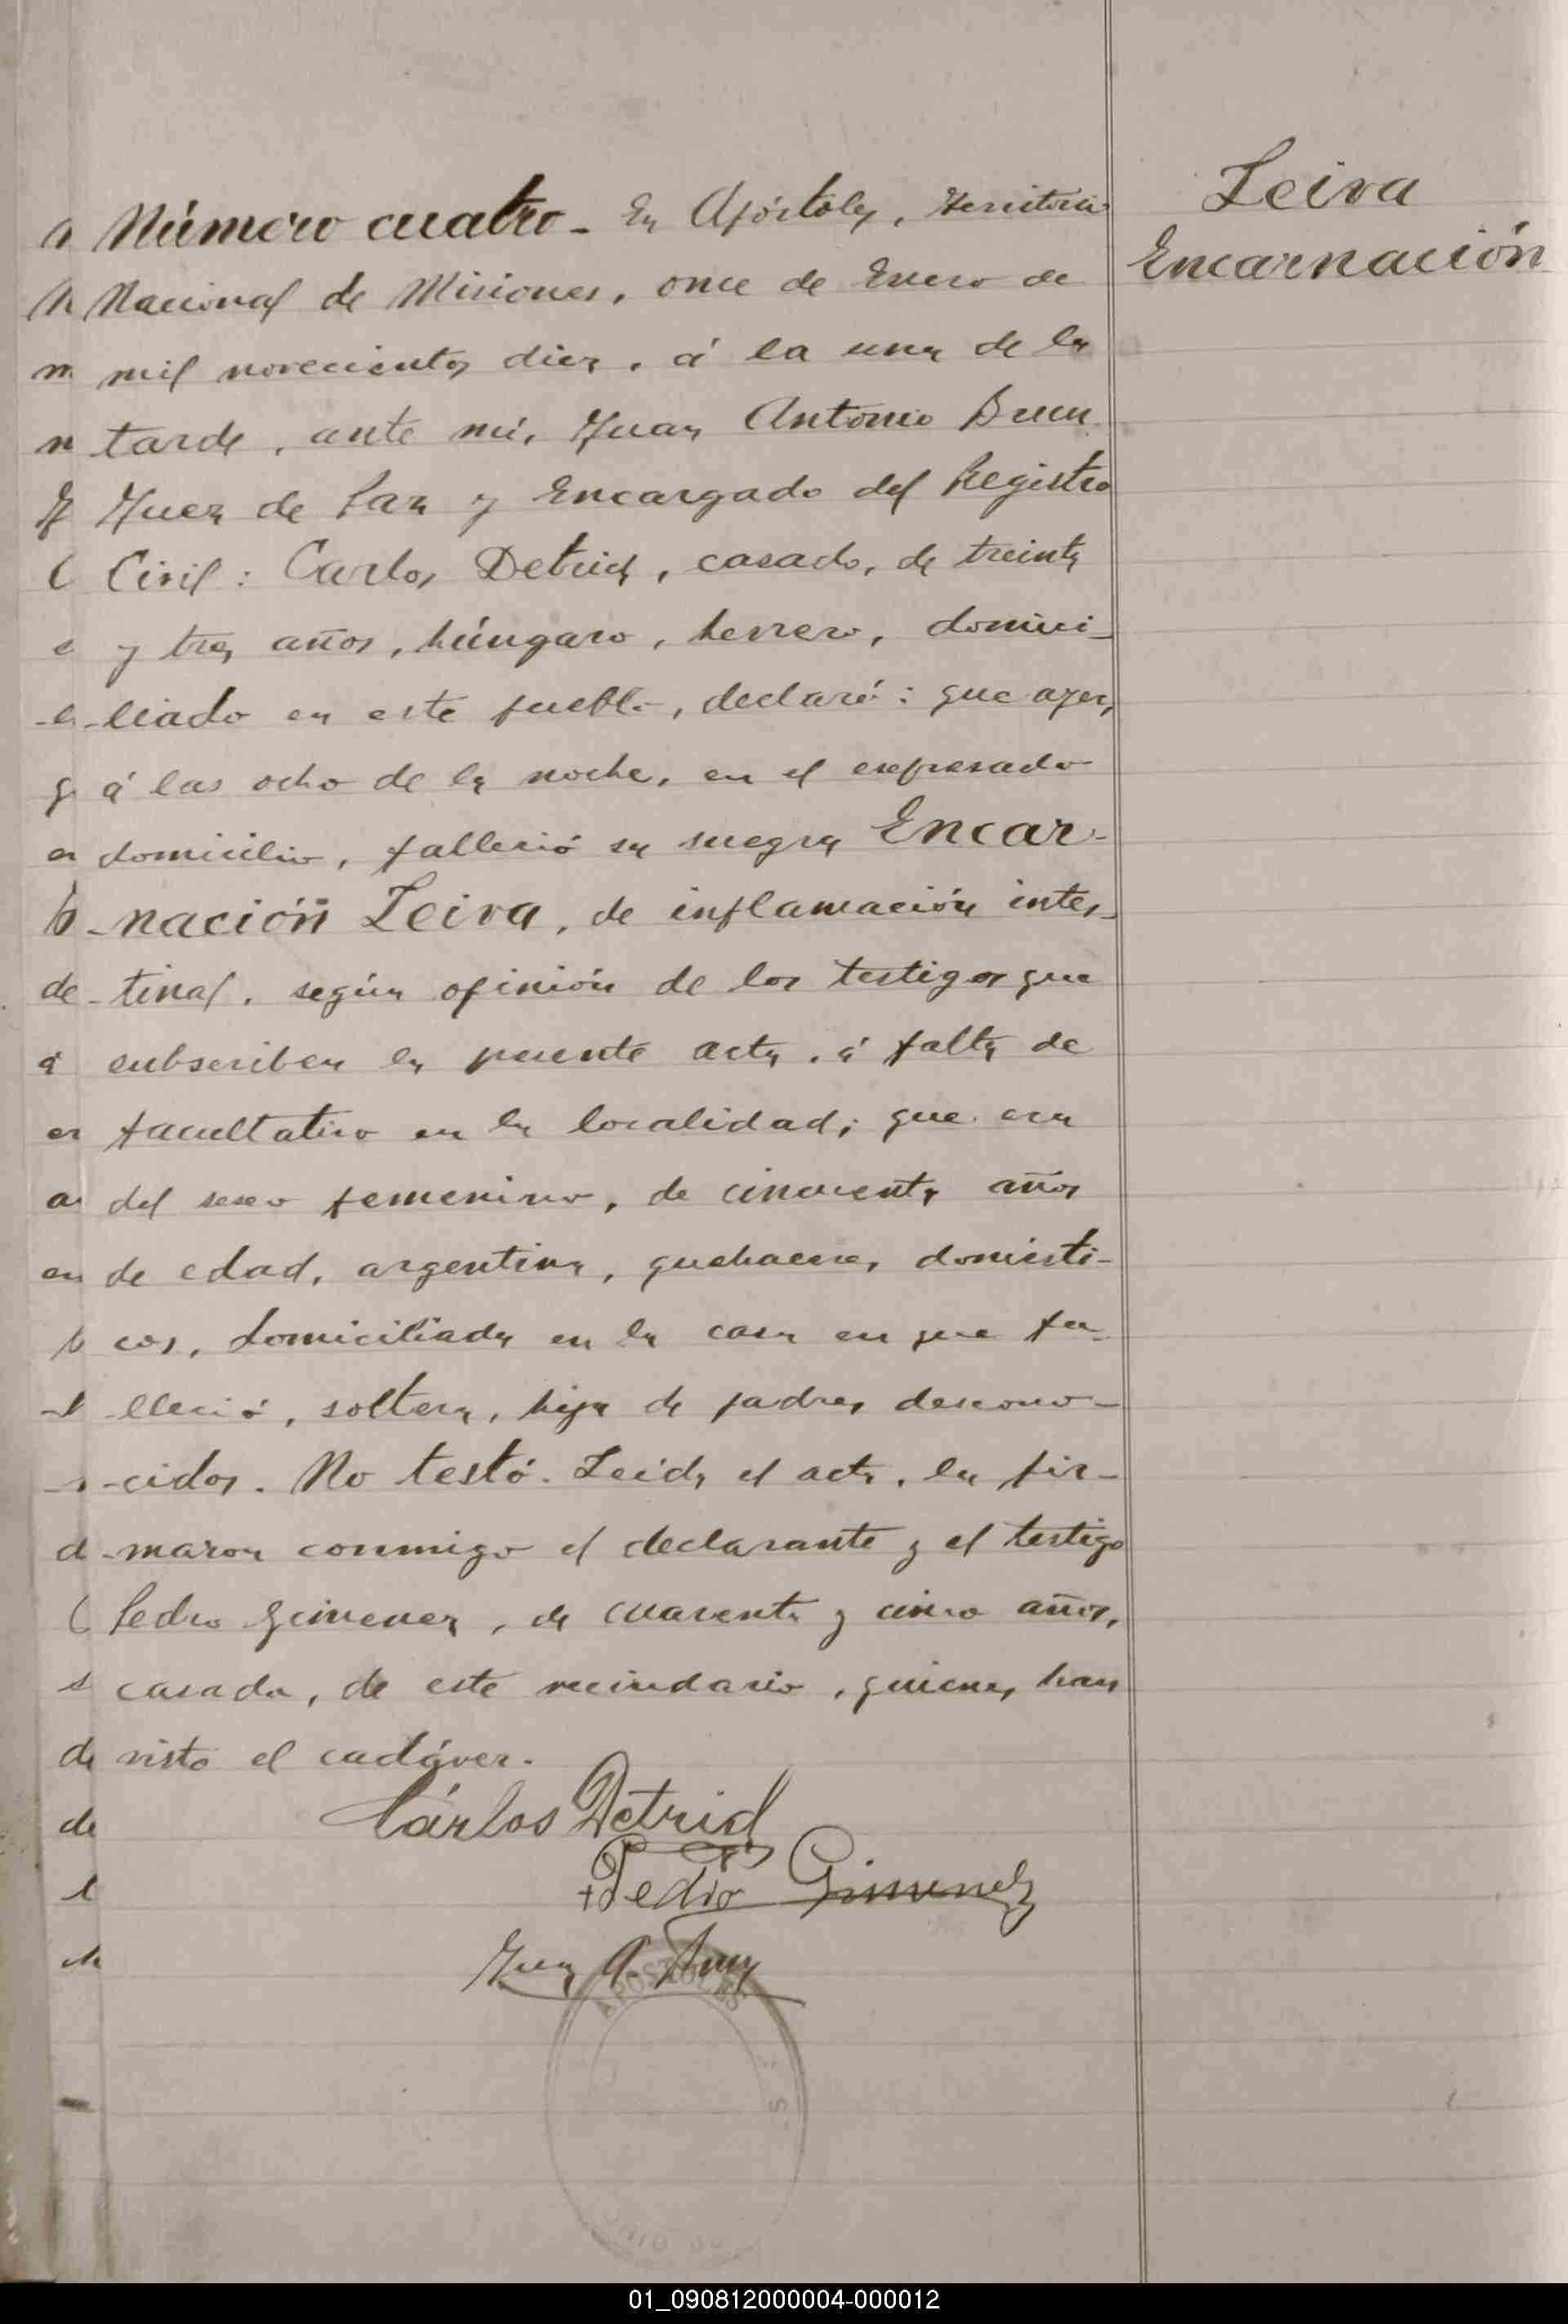 Leiva
Encarnación
Número cuatro - En Apóstoles, Territorio
Nacional de Misiones, once de Enero de
mil novecientos diez, á la una de la
tarde, ante mí, Juan Antonio
Juez de Paz y Encargado del Registro
Civil: Carlos Detrich, casado, de treinta
y tres años, húngaro, herrero, domici-
-liado en este pueblo, declaró: que ayer,
á las ocho de la noche, en el expresado
domicilio, falleció su suegra Encar-
-nación Leiva, de inflamación intes-
-tinal, según opinión de los testigos que
subscriben la presente acta, á falta de
facultativo en la localidad; que era
del sexo femenino, de cincuenta años
de edad, argentina, quehaceres domésti-
cos, domiciliada en la casa en que fa-
-lleció, soltera, hija de padres descono-
-cidos. No testó. Leida el acta, la fir-
-maron conmigo el declarante y el testigo
Pedro Gimenez, de cuarenta y cinco años,
casado, de este vecindario, quienes han
visto el cadáver.
Cárlos Detrich
Pedro Gimenez
Juan A.
APOSTOLES
01_090812000004-000012